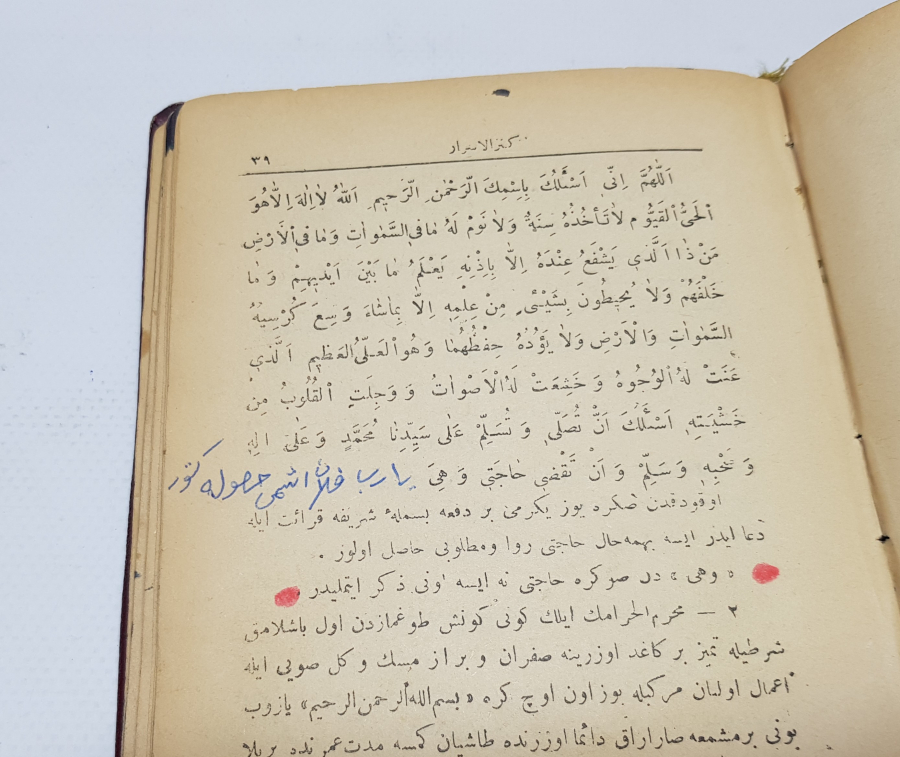 كنز الاسرار
٣٩
اَللّٰهُمَّ اِنّٖى اَسْئَلُكَ بِاِسْمِكَ الرَّحْمٰنِ الرَّحٖيمِ اَللّٰهُ لَا اِلٰهَ اِلَّا هُوَ
اَلْحَىُّ الْقَيُّومُ لَا تَأْخُذُهُ سِنَةٌ وَلَا نَوْمٌ لَهُ مَا فِى السَّمٰوَاتِ وَمَا فِى الْاَرْضِ
مَنْ ذَا الَّذٖى يَشْفَعُ عِنْدَهُ اِلَّا بِاِذْنِهٖ يَعْلَمُ مَا بَيْنَ اَيْدٖيهِمْ وَمَا
خَلْفَهُمْ وَلَا يُحٖيطُونَ بِشَيْئٍ مِنْ عِلْمِهٖ اِلَّا بِمَا شَاءَ وَسِعَ كُرْسِيُّهُ
السَّمٰوَاتِ وَالْاَرْضِ وَلَا يَؤُدُهُ حِفْظُهُمَا وَهُوَ الْعَلِىُّ الْعَظٖيمِ اَلَّذٖى
عَنَتْ لَهُ الْوُجُوهُ وَخَشِعَتْ لَهُ الْاَصْوَاتُ وَ وَجِلَتِ الْقُلُوبُ مِنْ
خَشْيَتِهٖ اَسْئَلُكَ اَنْ تُصَلِّىَ وَتُسَلِّمْ عَلٰى سَيِّدِنَا مُحَمَّدٍ وَعَلٰى اٰلِهٖ
وَصَحْبِهٖ وَسَلِّمْ وَاَنْ تَقْضٖىَ حَاجَتٖى وَهِىَ يا رب فلان اشمى حصوله كتور
اوقودقدن صكره يوز يكرمى بر دفعه بسملۀ شريفه قرائت ايله
دعا ايدر ايسه بهمه حال حاجتى روا ومطلوبى حاصل اولور .
« وهى » دن صوكره حاجتى نه ايسه اونى ذكر ايتمليدر .
٢ — محرم الحرامك ايلك كونى كونش طوغمازدن اول باشلامق
شرطيله تميز بر كاغد اوزرينه صفران و بر از مسك و كل صويى ايله
اعمال اولنان مركبله يوز اون اوچ كره «بسم الله الرحمن الرحيم» يازوب
بونى بر مشمعه صاراراق دائما اوززنده طاشيان كمسه مدت عمرنده بر بلا